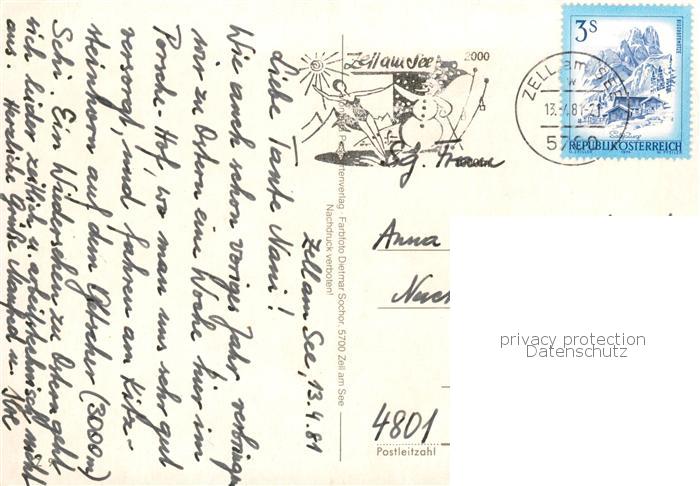 Zell am See, 13.4.81
Liebe Tante Nani!
Wie auch schon voriges Jahr verbringen
wir zu Ostern eine Woche hier im
Porsche-Hof, wo man uns sehr gut
versorgt, und fahren am Kitz-
steinhorn auf dem Gletscher (3000m)
Schi. Ein Wiedersehen zu Ostern geht
sich leider zeitlich u. arbeitstechnisch nicht
aus. Herzliche Grüße
Zell am See
2000
3S
BISCHOFSMÜTZE
REPUBLIK ÖSTERREICH
ZELL am SEE
13.-4.81
5700
Sg. Frau
Anna
4801
Postleitzahl
Farbfoto Dietmar Sochor, 5700 Zell am See
Nachdruck verboten!
privacy protection
Datenschutz